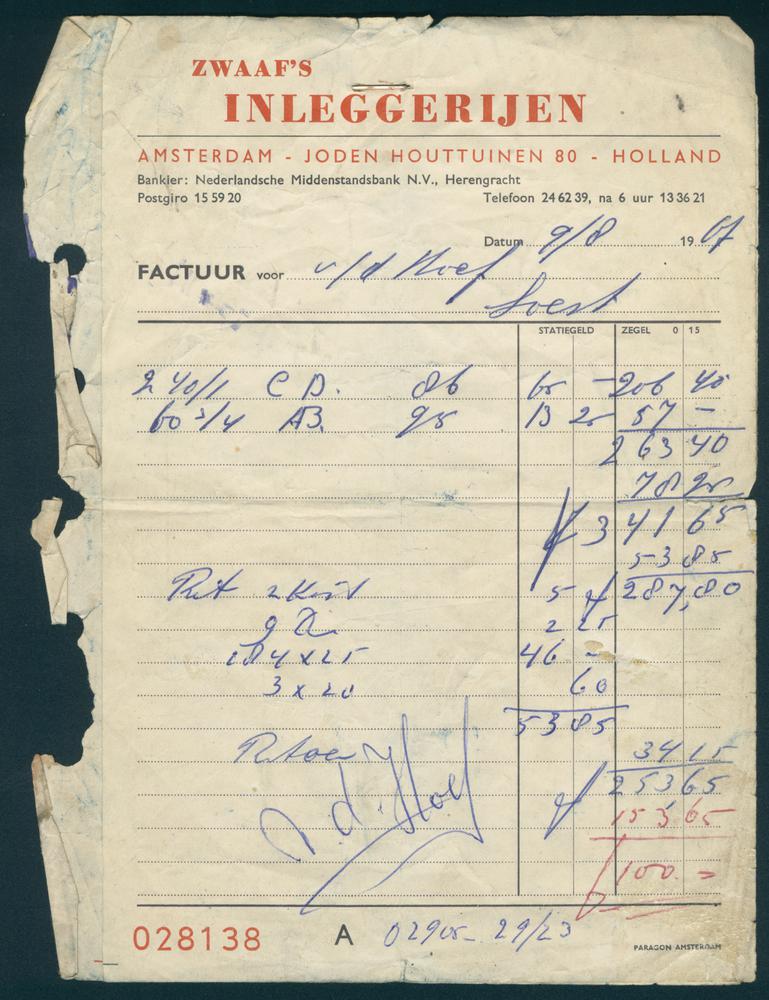 ZWAAF'S
INLEGGERIJEN
AMSTERDAM - JODEN HOUTTUINEN 80 - HOLLAND
Bankier: Nederlandsche Middenstandsbank N.V., Herengracht
Postgiro 15 59 20 Telefoon 24 62 39, na 6 uur 13 36 21
Datum 9/8 19 61
FACTUUR voor v/d Hoef
Soest
STATIEGELD ZEGEL 0 15
2 40/1 C D. 86 65 - 206 40
60 3/4 AB. 95 13 25 57 -
263 40
78 25
f 341 65
53 85
Ret 2 Kist 5 f 287,80
9 2 25
184 x 25 46 -
3 x 20 60
53 85
Retour 34 15
v.d. Hoef f 253 65
153 65
100 =
028138 A 02905-29/23
PARAGON AMSTERDAM